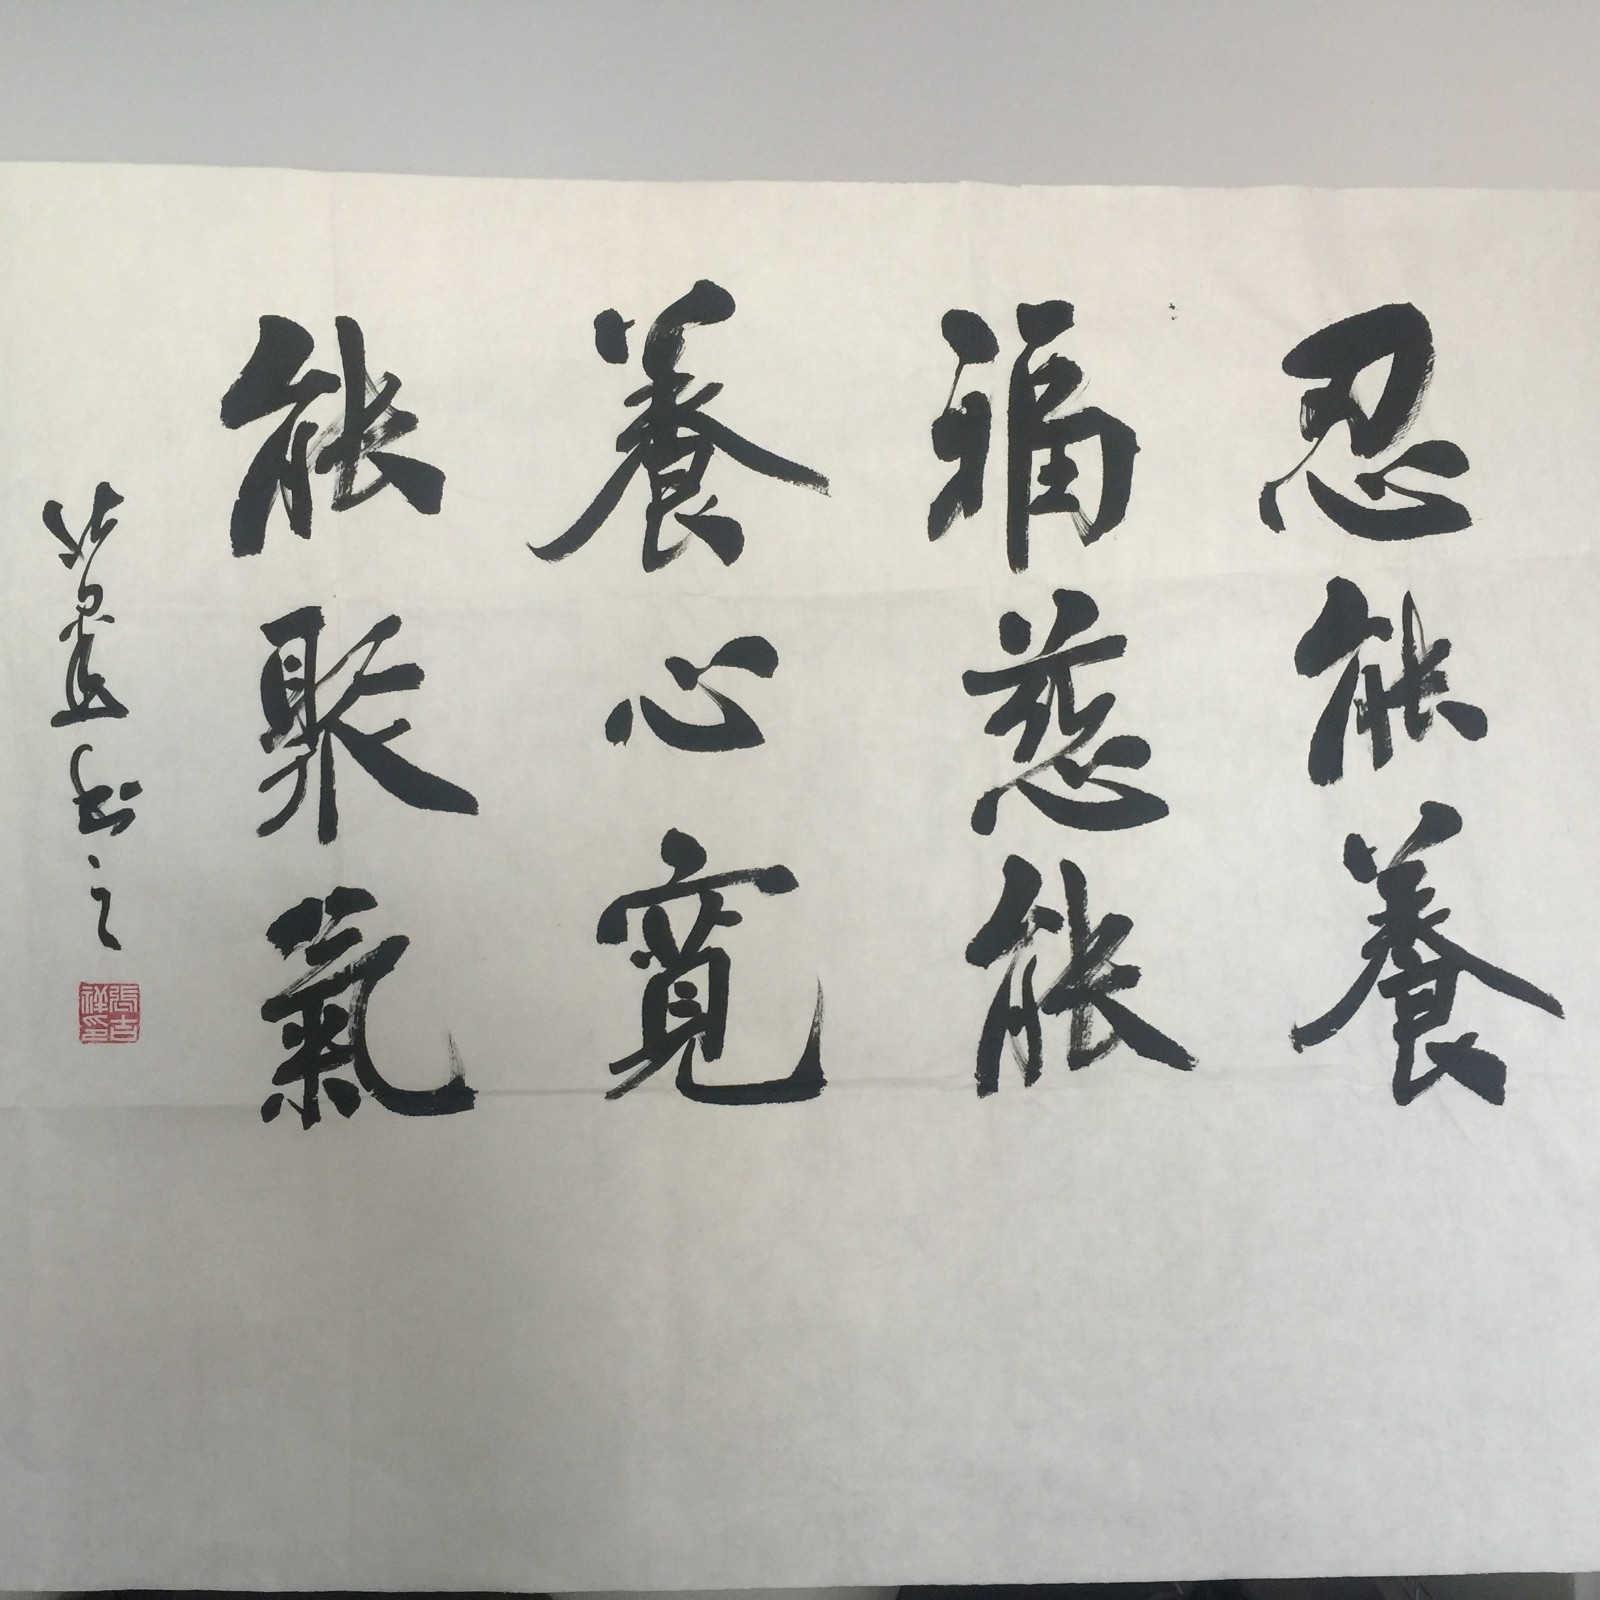 忍能養
福慈能
養心寬
能聚氣
北墨書之
張吉祥印